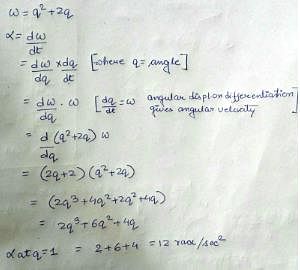 ω = q² + 2q
α = dω/dt
= dω/dq × dq/dt [where q = angle]
= dω/dq . ω [dq/dt = ω angular displ on differentiation gives angular velocity]
= d/dq (q² + 2q) ω
= (2q+2) (q² + 2q)
= (2q³ + 4q² + 2q² + 4q)
= 2q³ + 6q² + 4q
α at q = 1 = 2 + 6 + 4 = 12 rad/sec²